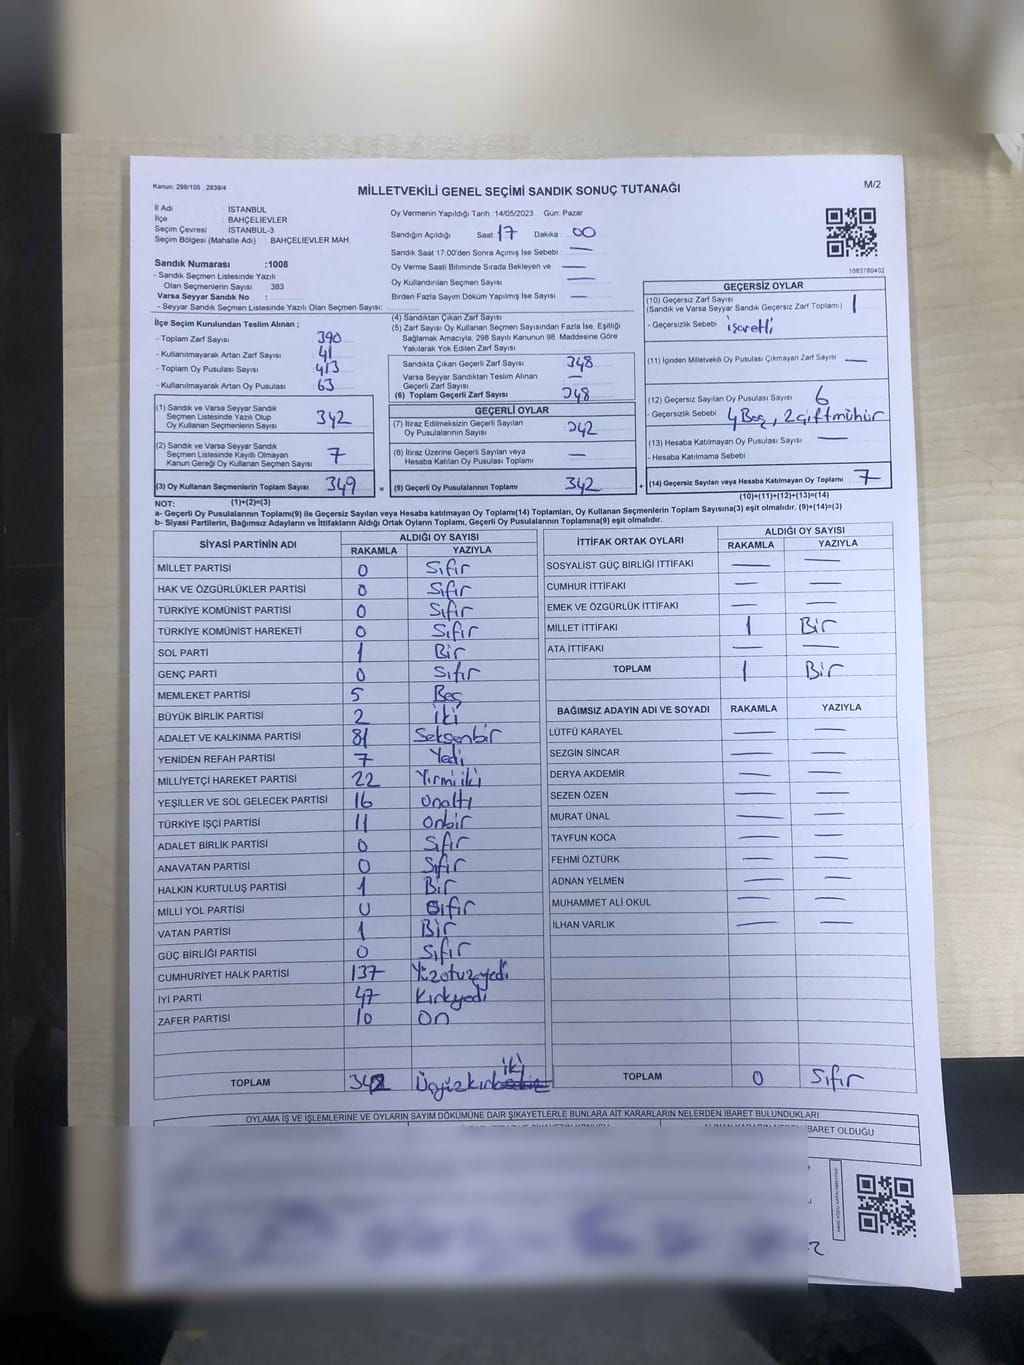 Kanun: 298/105 , 2839/4
MİLLETVEKİLİ GENEL SEÇİMİ SANDIK SONUÇ TUTANAĞI
M/2
İl Adı : İSTANBUL
İlçe : BAHÇELİEVLER
Seçim Çevresi : İSTANBUL-3
Seçim Bölgesi (Mahalle Adı) : BAHÇELİEVLER MAH.
Sandık Numarası :1008
- Sandık Seçmen Listesinde Yazılı
Olan Seçmenlerin Sayısı : 383
Varsa Seyyar Sandık No :
- Seyyar Sandık Seçmen Listesinde Yazılı Olan Seçmen Sayısı:
Oy Vermenin Yapıldığı Tarih :14/05/2023 Gün: Pazar
Sandığın Açıldığı Saat: 17 Dakika : 00
Sandık Saat 17:00'den Sonra Açılmış İse Sebebi : —
Oy Verme Saati Bitiminde Sırada Bekleyen ve : —
Oy Kullandırılan Seçmen Sayısı : —
Birden Fazla Sayım Döküm Yapılmış İse Sayısı : —
1083780402
İlçe Seçim Kurulundan Teslim Alınan ;
- Toplam Zarf Sayısı : 390
- Kullanılmayarak Artan Zarf Sayısı : 41
- Toplam Oy Pusulası Sayısı : 413
- Kullanılmayarak Artan Oy Pusulası : 63
(1) Sandık ve Varsa Seyyar Sandık
Seçmen Listesinde Yazılı Olup
Oy Kullanan Seçmenlerin Sayısı 342
(2) Sandık ve Varsa Seyyar Sandık
Seçmen Listesinde Kayıtlı Olmayan
Kanun Gereği Oy Kullanan Seçmen Sayısı 7
(3) Oy Kullanan Seçmenlerin Toplam Sayısı 349 =
(4) Sandıktan Çıkan Zarf Sayısı :
(5) Zarf Sayısı Oy Kullanan Seçmen Sayısından Fazla İse, Eşitliği
Sağlamak Amacıyla, 298 Sayılı Kanunun 98. Maddesine Göre
Yakılarak Yok Edilen Zarf Sayısı :
Sandıkta Çıkan Geçerli Zarf Sayısı : 348
Varsa Seyyar Sandıktan Teslim Alınan
Geçerli Zarf Sayısı : —
(6) Toplam Geçerli Zarf Sayısı : 348
GEÇERLİ OYLAR
(7) İtiraz Edilmeksizin Geçerli Sayılan
Oy Pusulalarının Sayısı : 342
(8) İtiraz Üzerine Geçerli Sayılan veya
Hesaba Katılan Oy Pusulası Toplamı : —
(9) Geçerli Oy Pusulalarının Toplamı : 342 +
GEÇERSİZ OYLAR
(10) Geçersiz Zarf Sayısı
(Sandık ve Varsa Seyyar Sandık Geçersiz Zarf Toplamı) : 1
- Geçersizlik Sebebi : işaretli
(11) İçinden Milletvekili Oy Pusulası Çıkmayan Zarf Sayısı : —
(12) Geçersiz Sayılan Oy Pusulası Sayısı : 6
- Geçersizlik Sebebi : 4 Boş, 2 çift mühür
(13) Hesaba Katılmayan Oy Pusulası Sayısı : —
- Hesaba Katılmama Sebebi :
(14) Geçersiz Sayılan veya Hesaba Katılmayan Oy Toplamı : 7
(10)+(11)+(12)+(13)=(14)
NOT: (1)+(2)=(3)
a- Geçerli Oy Pusulalarının Toplamı(9) ile Geçersiz Sayılan veya Hesaba katılmayan Oy Toplamı(14) Toplamları, Oy Kullanan Seçmenlerin Toplam Sayısına(3) eşit olmalıdır. (9)+(14)=(3)
b- Siyasi Partilerin, Bağımsız Adayların ve İttifakların Aldığı Ortak Oyların Toplamı, Geçerli Oy Pusulalarının Toplamına(9) eşit olmalıdır.
SİYASİ PARTİNİN ADI ALDIĞI OY SAYISI
RAKAMLA YAZIYLA
MİLLET PARTİSİ 0 Sıfır
HAK VE ÖZGÜRLÜKLER PARTİSİ 0 Sıfır
TÜRKİYE KOMÜNİST PARTİSİ 0 Sıfır
TÜRKİYE KOMÜNİST HAREKETİ 0 Sıfır
SOL PARTİ 1 Bir
GENÇ PARTİ 0 Sıfır
MEMLEKET PARTİSİ 5 Beş
BÜYÜK BİRLİK PARTİSİ 2 İki
ADALET VE KALKINMA PARTİSİ 81 Seksenbir
YENİDEN REFAH PARTİSİ 7 Yedi
MİLLİYETÇİ HAREKET PARTİSİ 22 Yirmi iki
YEŞİLLER VE SOL GELECEK PARTİSİ 16 Onaltı
TÜRKİYE İŞÇİ PARTİSİ 11 Onbir
ADALET BİRLİK PARTİSİ 0 Sıfır
ANAVATAN PARTİSİ 0 Sıfır
HALKIN KURTULUŞ PARTİSİ 1 Bir
MİLLİ YOL PARTİSİ 0 Sıfır
VATAN PARTİSİ 1 Bir
GÜÇ BİRLİĞİ PARTİSİ 0 Sıfır
CUMHURİYET HALK PARTİSİ 137 Yüzotuzyedi
İYİ PARTİ 47 Kırkyedi
ZAFER PARTİSİ 10 On
TOPLAM 342 Üçyüzkırk iki
İTTİFAK ORTAK OYLARI ALDIĞI OY SAYISI
RAKAMLA YAZIYLA
SOSYALİST GÜÇ BİRLİĞİ İTTİFAKI — —
CUMHUR İTTİFAKI — —
EMEK VE ÖZGÜRLÜK İTTİFAKI — —
MİLLET İTTİFAKI 1 Bir
ATA İTTİFAKI — —
TOPLAM 1 Bir
BAĞIMSIZ ADAYIN ADI VE SOYADI RAKAMLA YAZIYLA
LÜTFÜ KARAYEL — —
SEZGİN SİNCAR — —
DERYA AKDEMİR — —
SEZEN ÖZEN — —
MURAT ÜNAL — —
TAYFUN KOCA — —
FEHMİ ÖZTÜRK — —
ADNAN YELMEN — —
MUHAMMET ALİ OKUL — —
İLHAN VARLIK — —
TOPLAM 0 Sıfır
OYLAMA İŞ VE İŞLEMLERİNE VE OYLARIN SAYIM DÖKÜMÜNE DAİR ŞİKAYETLERLE BUNLARA AİT KARARLARIN NELERDEN İBARET BULUNDUKLARI
BARET OLDUĞU